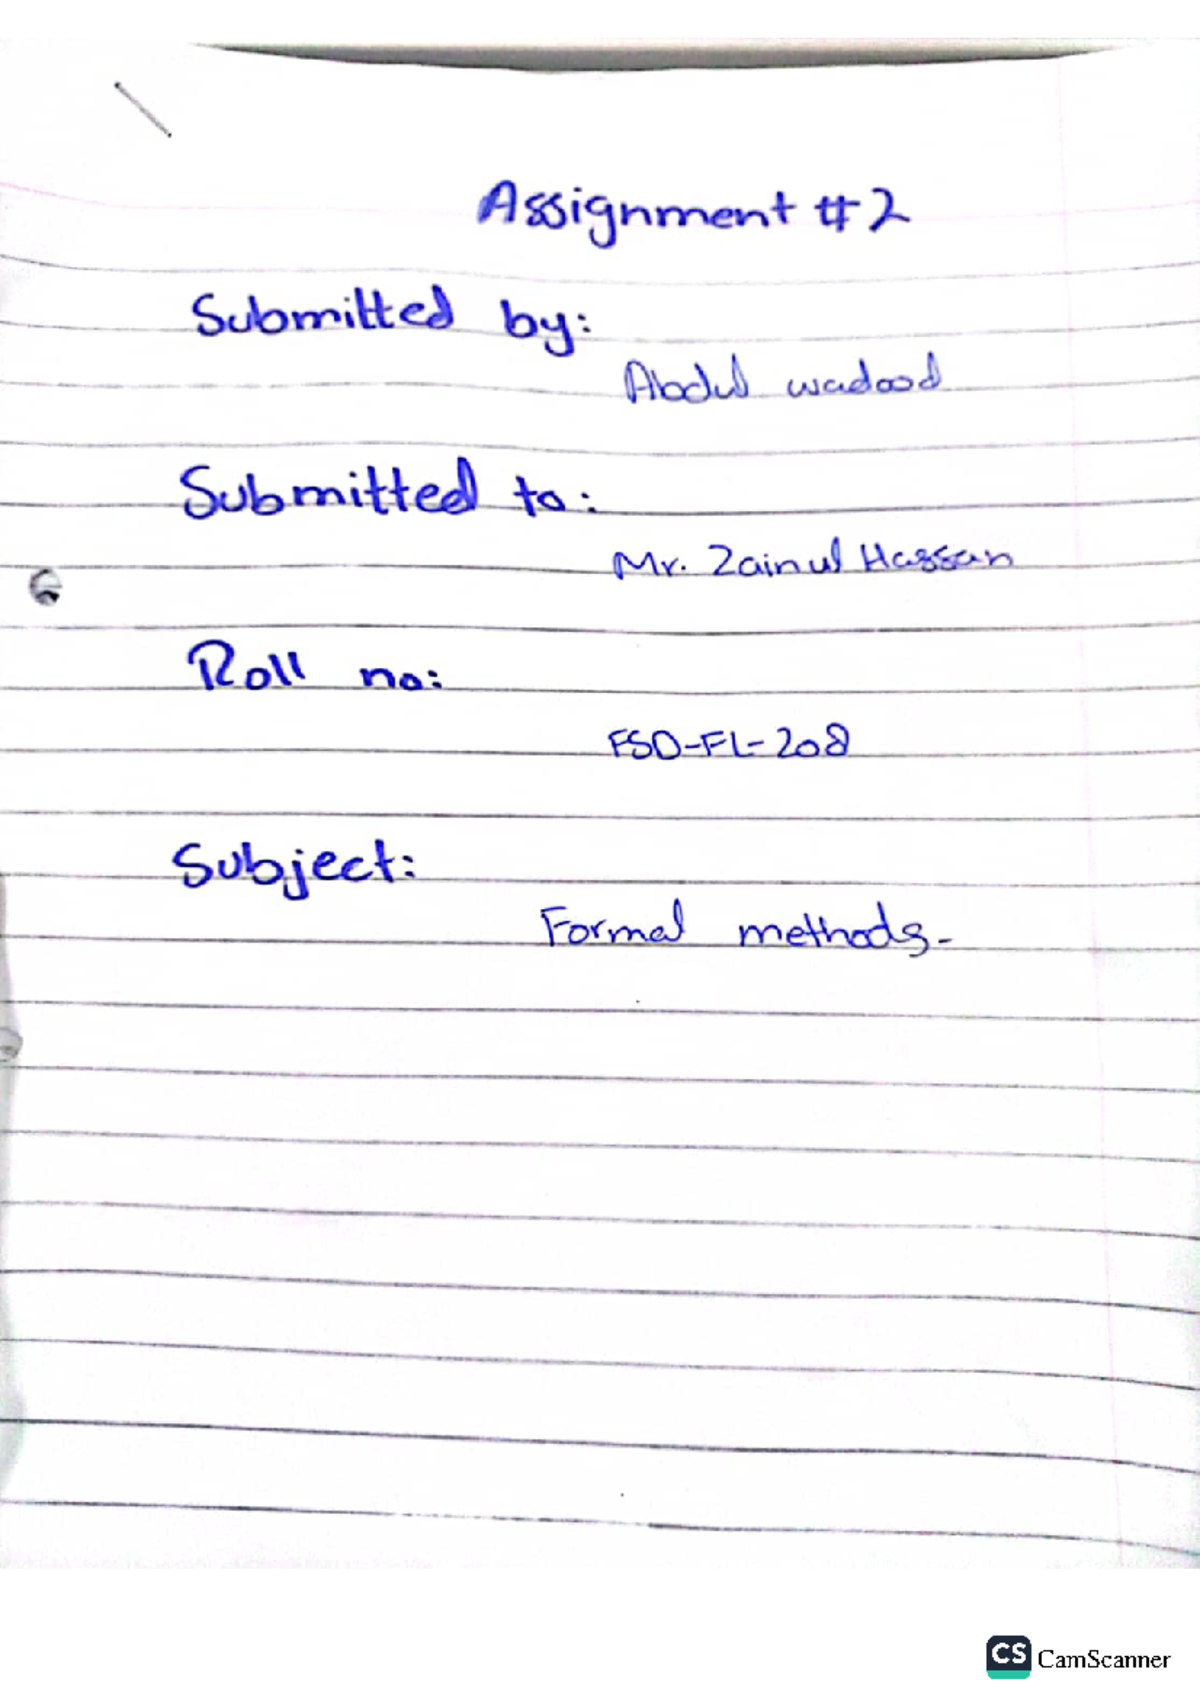 Assignment #2
Submitted by:
Abdul wadood
Submitted to:
Mr. Zainul Hassan
Roll no:
FSD-FL-208
Subject:
Formal methods-
CS CamScanner